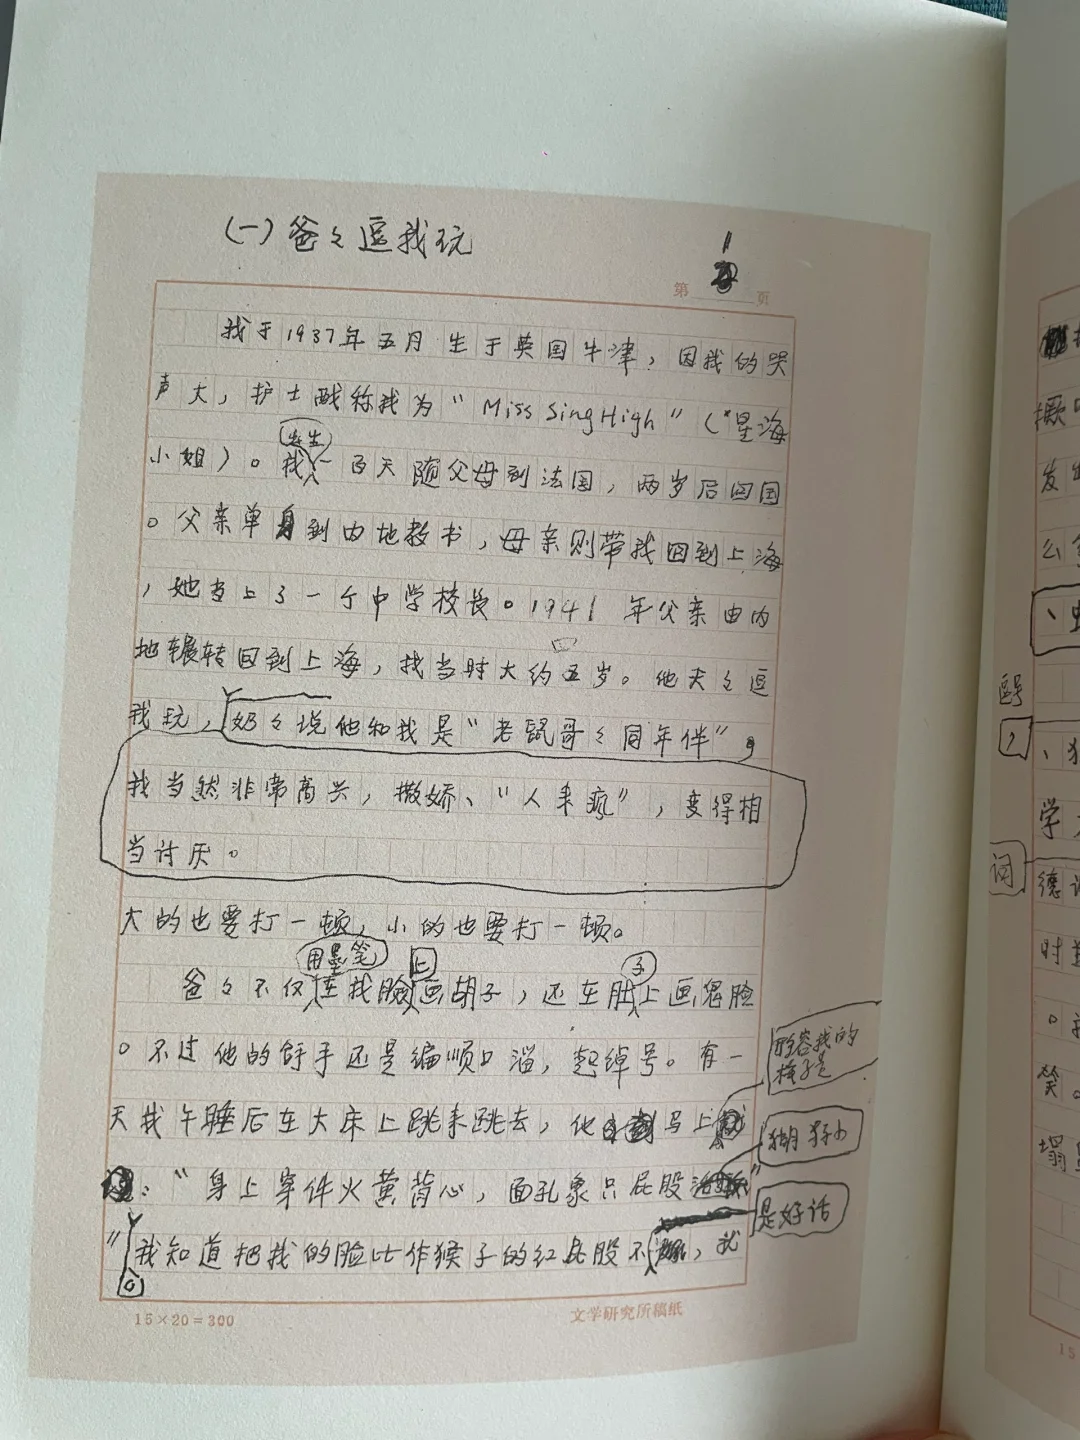 (一)爸々逗我玩
1
第 页
我于1937年五月生于英国牛津，因我的哭
声大，护士戏称我为“Miss Sing High”（“星海
(出生)
小姐）。我一百天随父母到法国，两岁后回国
。父亲单身到内地教书，母亲则带我回到上海
，她当上了一个中学校长。1941年父亲由内
地辗转回到上海，我当时大约五岁。他天々逗
我玩，奶々说他和我是“老鼠哥々同年伴”，
我当然非常高兴，撒娇、“人来疯”，变得相
当讨厌。
大的也要打一顿，小的也要打一顿。
用墨笔 上 子
爸々不仅在我脸画胡子，还在肚上画鬼脸
形容我的
样子是
。不过他的舒手还是编顺口溜，起绰号。有一
天我午睡后在大床上跳来跳去，他马上
猢狲小
：“身上穿件火黄背心，面孔象只屁股
是好话
”我知道把我的脸比作猴子的红屁股不，就
。
15×20=300
文学研究所稿纸
发
么
学
词
德
时
。
15